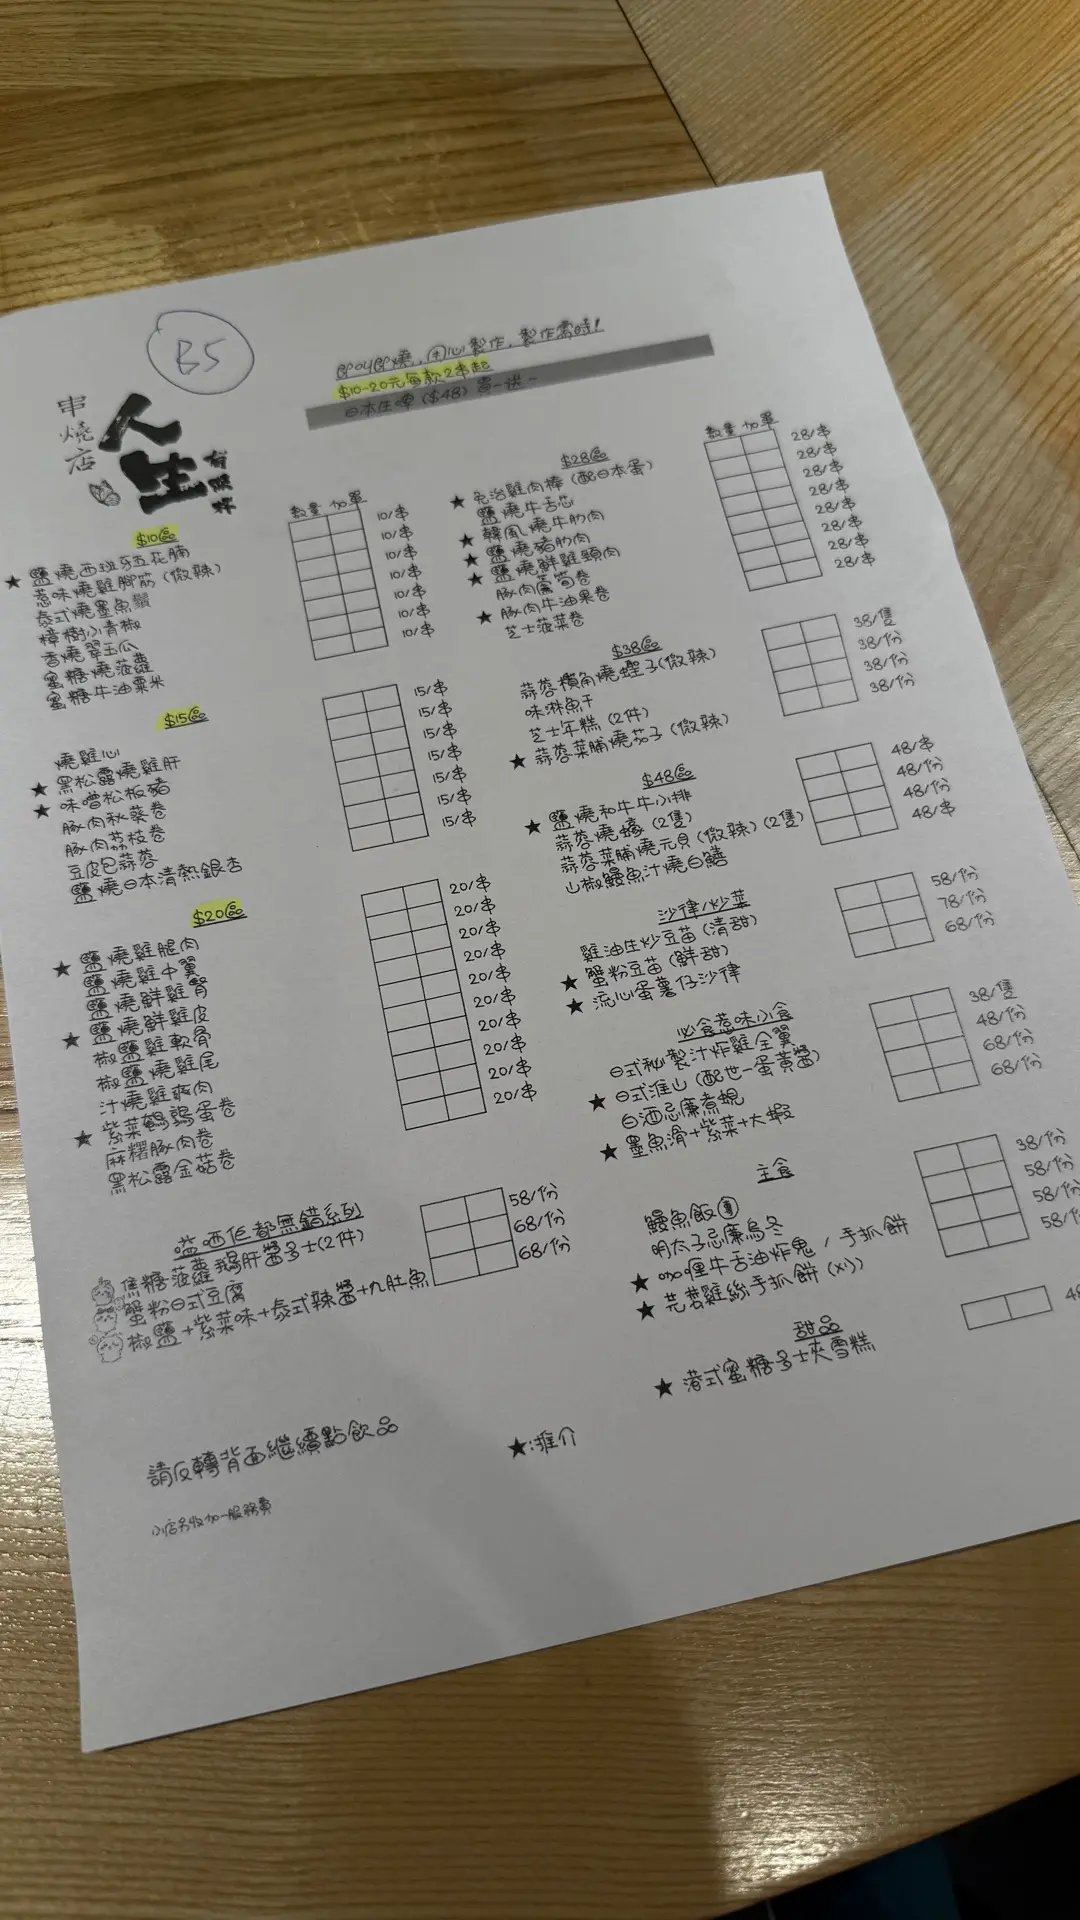 B5
串燒店
人生
有限杯
即叫即燒, 用心製作, 製作需時!
$10-20元每款2串起
日本生啤 ($48) 買一送一
$10區
數量 加單
★ 鹽燒西班牙五花腩 10/串
惹味燒雞腳筋 (微辣) 10/串
泰式燒墨魚鬚 10/串
樟樹小青椒 10/串
香燒翠玉瓜 10/串
蜜糖燒菠蘿 10/串
蜜糖牛油粟米 10/串
$15區
燒雞心 15/串
★ 黑松露燒雞肝 15/串
★ 味噌松板豬 15/串
豚肉秋葵卷 15/串
豚肉荔枝卷 15/串
豆皮包蒜蓉 15/串
鹽燒日本清熱銀杏 15/串
$20區
★ 鹽燒雞腿肉 20/串
鹽燒雞中翼 20/串
鹽燒鮮雞腎 20/串
★ 鹽燒鮮雞皮 20/串
椒鹽雞軟骨 20/串
椒鹽燒雞尾 20/串
汁燒雞爽肉 20/串
★ 紫菜鵪鶉蛋卷 20/串
麻糬豚肉卷 20/串
黑松露金菇卷 20/串
嗌哂佢都無錯系列
焦糖菠蘿鵝肝醬多士(2件) 58/份
蟹粉日式豆腐 68/份
椒鹽+紫菜味+泰式辣醬+九肚魚 68/份
$28區
數量 加單
★ 免治雞肉棒 (配日本蛋) 28/串
鹽燒牛舌芯 28/串
★ 韓風燒牛肋肉 28/串
★ 鹽燒豬肋肉 28/串
★ 鹽燒鮮雞頸肉 28/串
豚肉露筍卷 28/串
★ 豚肉牛油果卷 28/串
芝士菠菜卷 28/串
$38區
蒜蓉欖角燒蟶子(微辣) 38/隻
味淋魚干 38/份
芝士年糕 (2件) 38/份
★ 蒜蓉菜脯燒茄子 (微辣) 38/份
$48區
★ 鹽燒和牛牛小排 48/串
蒜蓉燒蠔 (2隻) 48/份
蒜蓉菜脯燒元貝 (微辣) (2隻) 48/份
山椒鰻魚汁燒白鱔 48/串
沙律/炒菜
雞油生炒豆苗 (清甜) 58/份
★ 蟹粉豆苗 (鮮甜) 78/份
★ 流心蛋薯仔沙律 68/份
必食惹味小食
日式秘製汁炸雞全翼 38/隻
★ 日式淮山 (配世一蛋黃醬) 48/份
白酒忌廉煮蜆 68/份
★ 墨魚滑+紫菜+大蝦 68/份
主食
鰻魚飯團 38/份
明太子忌廉烏冬 58/份
★ 咖喱牛舌油炸鬼 / 手抓餅 58/份
★ 芫荽雞絲手抓餅 (凍) 58/份
甜品
★ 港式蜜糖多士夾雪糕
請反轉背面繼續點飲品
★:推介
小店另收加一服務費